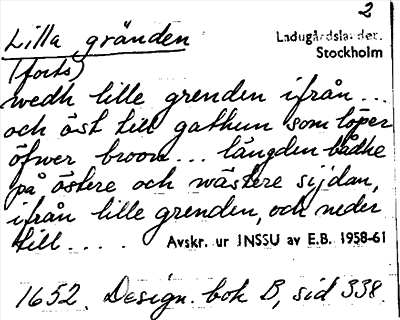 2
Lilla gränden
Ladugårdslandet.
Stockholm
(forts)
wedh lille grenden ifrån ...
och öst till gathun som löper
öfwer broon ... längden bådhe
på östere och wästere sijdan,
ifrån lille grenden, och neder
till ....
Avskr. ur INSSU av E.B. 1958-61
1652. Design. bok B, sid 338.